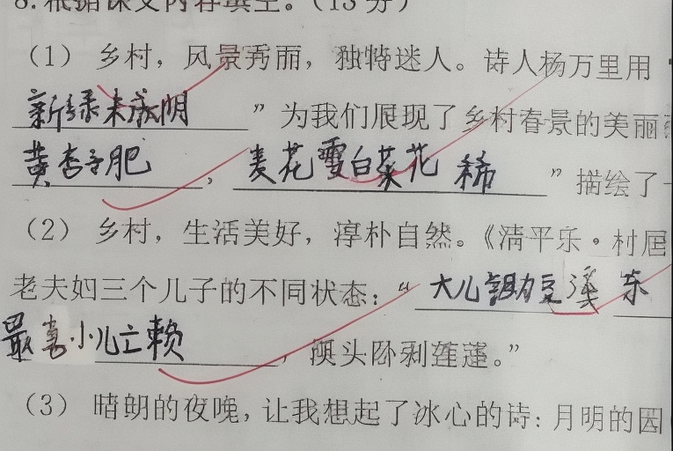 8.根据课文内容填空。(13分)
(1) 乡村，风景秀丽，独特迷人。诗人杨万里用“
新绿未成阴”为我们展现了乡村春景的美丽
黄杏子肥，麦花雪白菜花稀”描绘了一
(2) 乡村，生活美好，淳朴自然。《清平乐·村居
老夫妇三个儿子的不同状态：“大儿锄豆溪东
最喜小儿亡赖，溪头卧剥莲蓬。”
(3) 暗朗的夜晚，让我想起了冰心的诗：月明的园